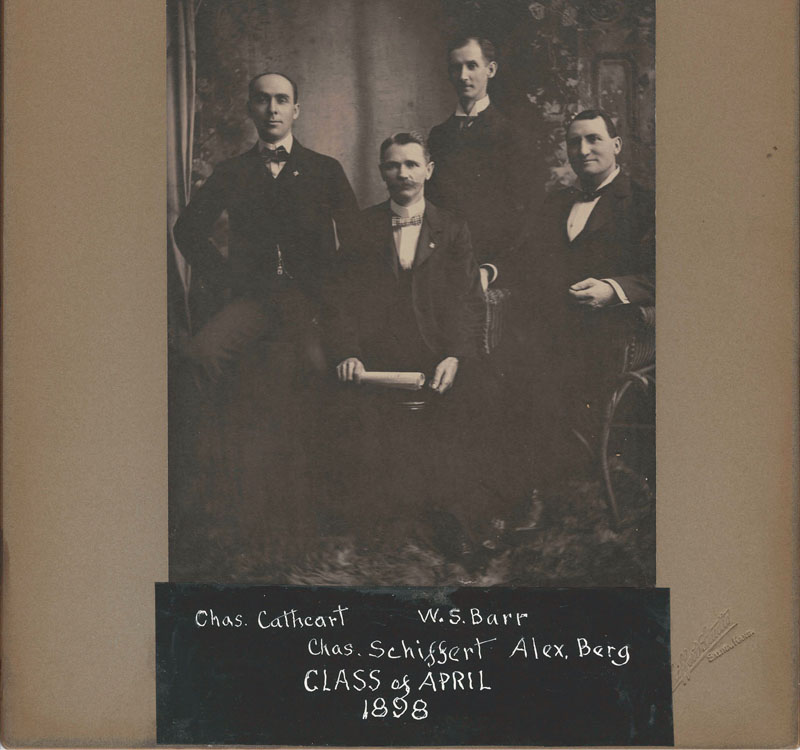 Chas. Cathcart W. S. Barr
Chas. Schiffert Alex. Berg
CLASS of APRIL
1898